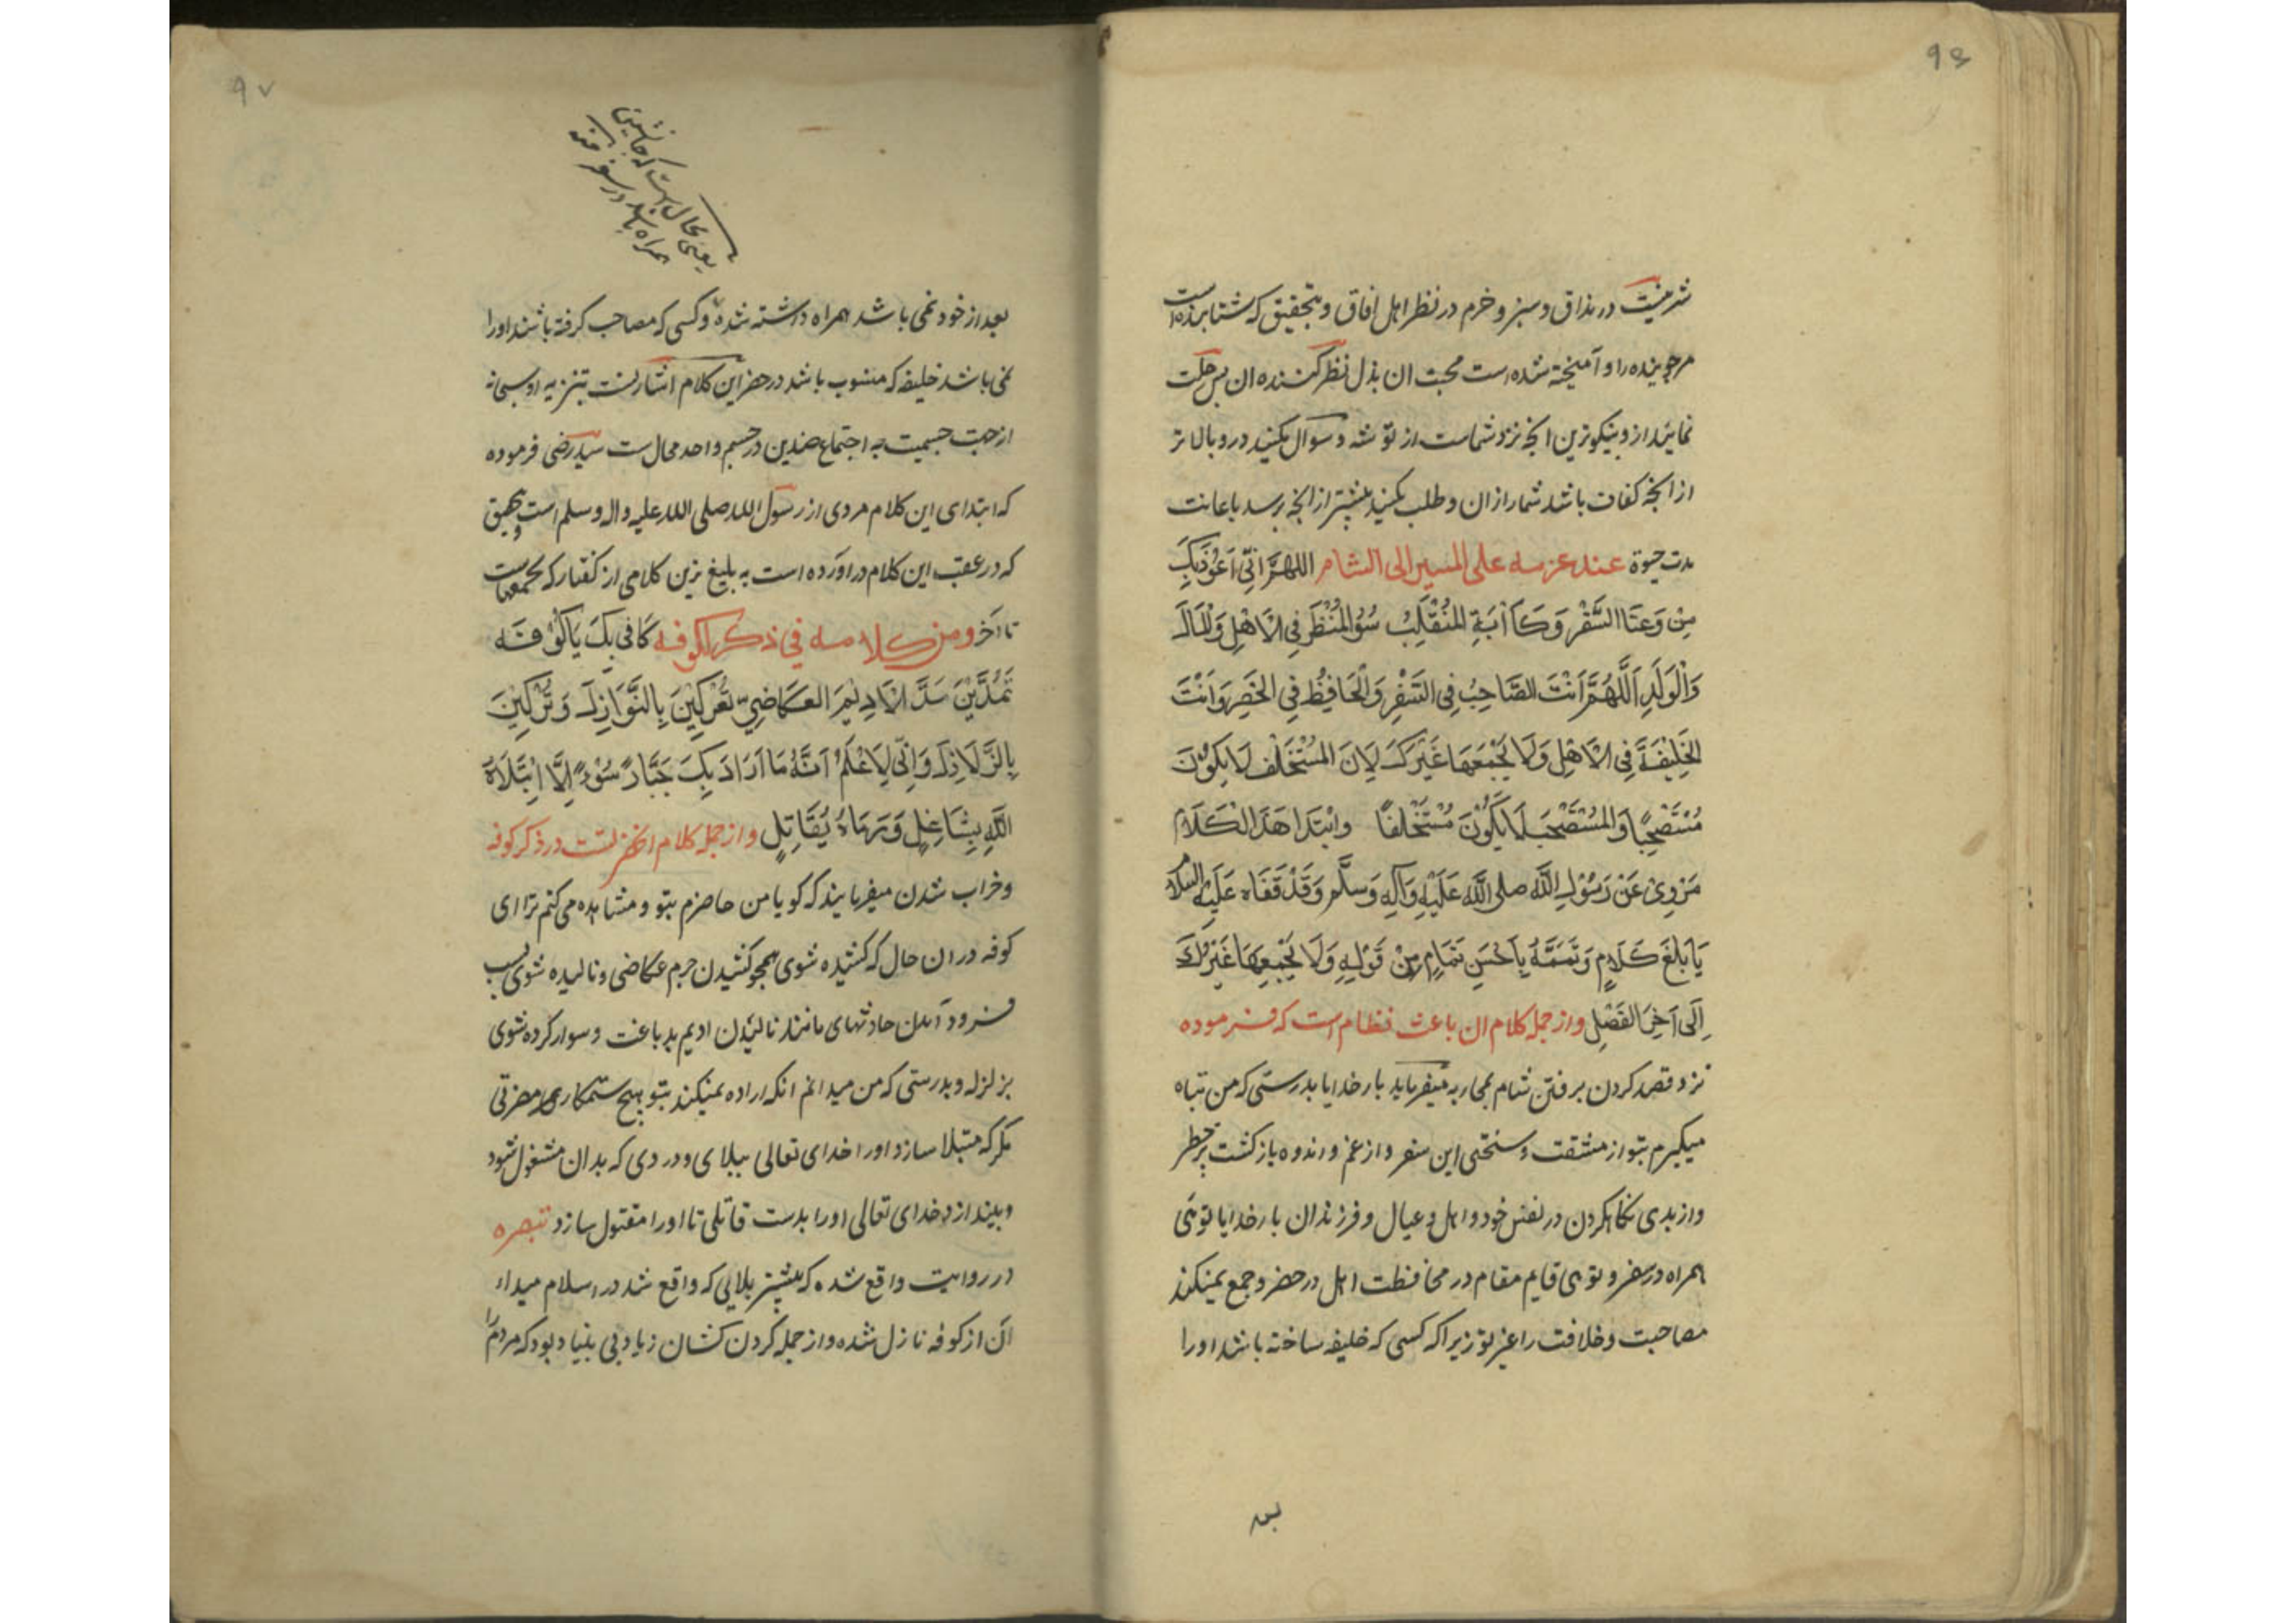 ۹۶
شیرینست در مذاق و سبز و خرم در نظر اهل افاق و بتحقیق که شتابنده است
مر جوینده را و آمیخته شده است محبت ان بدل نظر کننده ان پس رحلت
نمائید از و بنیکوترین انچه نزد شماست از توشه و سوال مکنید در و بالاتر
از انچه کفاف باشد شما را از ان و طلب مکنید بیشتر از انچه برسد باعانت
مدت حیوة عند عزمه علی المسیر الی الشام اللهُمَّ اِنّی اَعُوذُ بِکَ
مِنْ وَعَثَاا السَّفَرِ وَ کَاٰبَةِ المُنْقَلَبِ سُوْ المَنْظَرِ فِی الْاَهْلِ وَالْمَالِ
وَالْوَلَدِ اَللّٰهُمَّ اَنْتَ الصَّاحِبُ فِی السَّفَرِ وَالْحَافِظُ فِی الحَضَرِ وَ اَنْتَ
الخَلِیْفَةُ فِی الْاَهْلِ وَلَا یَجْمَعُهَا غَیْرُکَ لِاَنَ المُسْتَخْلَفَ لَا یَکُوْنُ
مُسْتَصْحَبًا وَالمُسْتَصْحَبَ لَا یَکُوْنُ مُسْتَخْلَفًا وابْتِدا هَذَا الْکَلَامُ
مَرْوِیٌ عَنْ رَسُوْلِ اللّٰه صلی اللّٰه عَلَیْهِ وَاٰلِه وَسَلَّم وَقَدْ قَفَاه عَلَیْهِ السلام
یَابْلَغِ کَلَامٍ وَتَمَمَّهُ بِاَحْسَنِ تَمَامٍ مِنْ قَوْلِهِ وَلَا یَجْمَعُهَا غَیْرُکَ
اِلَی آخِرِ الفَصْلِ و از جمله کلام ان باعث نظام است که فرموده
نزد قصد کردن برفتن شام بمحاربه میفرماید بار خدایا بدرستی که من پناه
میکیرم بتو از مشقت و سختی این سفر و از غم و اندوه بازکشت پر خطر
و از بدی نکاه کردن در نفس خود و اهل و عیال و فرزندان بار خدایا توئی
همراه در سفر و توئی قایم مقام در محافظت اهل در حضر و جمع نمیکند
مصاحبت و خلافت را غیر تو زیرا که کسی که خلیفه ساخته باشند او را
۹۷
یعنی محال است که جانشین
همراه باشد در سفر
بعد از خود نمی باشد همراه داشته شده و کسی که مصاحب کرفته باشند او را
نمی باشد خلیفه که منسوب باشد در حضر این کلام اشارتست بتنزیه او سبحانه
از جهت جسمیت چه اجتماع ضدین در جسم واحد محال ست سید رضی فرموده
که ابتدای این کلام مروی از رسول الله صلی الله علیه واله وسلم است و بتحقیق
که در عقب این کلام در اورده است به بلیغ ترین کلامی از کفتار که لایجمعهما
تا آخر ومن کلام له فی ذکر الکوفه کَانی بِکَ یَا کُوْفَه
تَمُدِّیْنَ مَدَّ الْاَدِیْمَ العکَاضِیِّ تُعْرَکِیْنَ بِالنَّوَازِلِ وَ تُرْکَبِیْنَ
بِالزَّلَازِلِ وَ اِنّی لَاَعْلَمُ اَنَّهُ مَا اَرَادَ بِکَ جَبَّارٌ سُوْءً اِلَّا ابْتَلَاهُ
اللّٰهُ بِشَاغِلٍ وَ رَمَاهُ بِقَاتِلٍ و از جمله کلام انحضرتست در ذکر کوفه
و خراب شدن میفرمایند که کویا من حاضرم بتو و مشاهده می کنم ترا ای
کوفه در ان حال که کشیده شوی همچو کشیدن جرم عکاضی و مالیده شوی بسبب
فرود آمدن حادثهای مانند مالیدن ادیم بدباغت و سوار کرده شوی
بزلزله و بدرستی که من میدانم انکه اراده نمیکند بتو هیچ ستمکاری مضرتی
مکر که مبتلا سازد او را خدای تعالی ببلای و دردی که بدان مشغول شود
و بیندازد خدای تعالی او را بدست قاتلی تا او را مقتول سازد تبصره
در روایت واقع شده که بیشتر بلایی که واقع شد در اسلام میدا
آن از کوفه نازل شده و از جمله کردن کشان زیاد بی بنیاد بود که مردم را